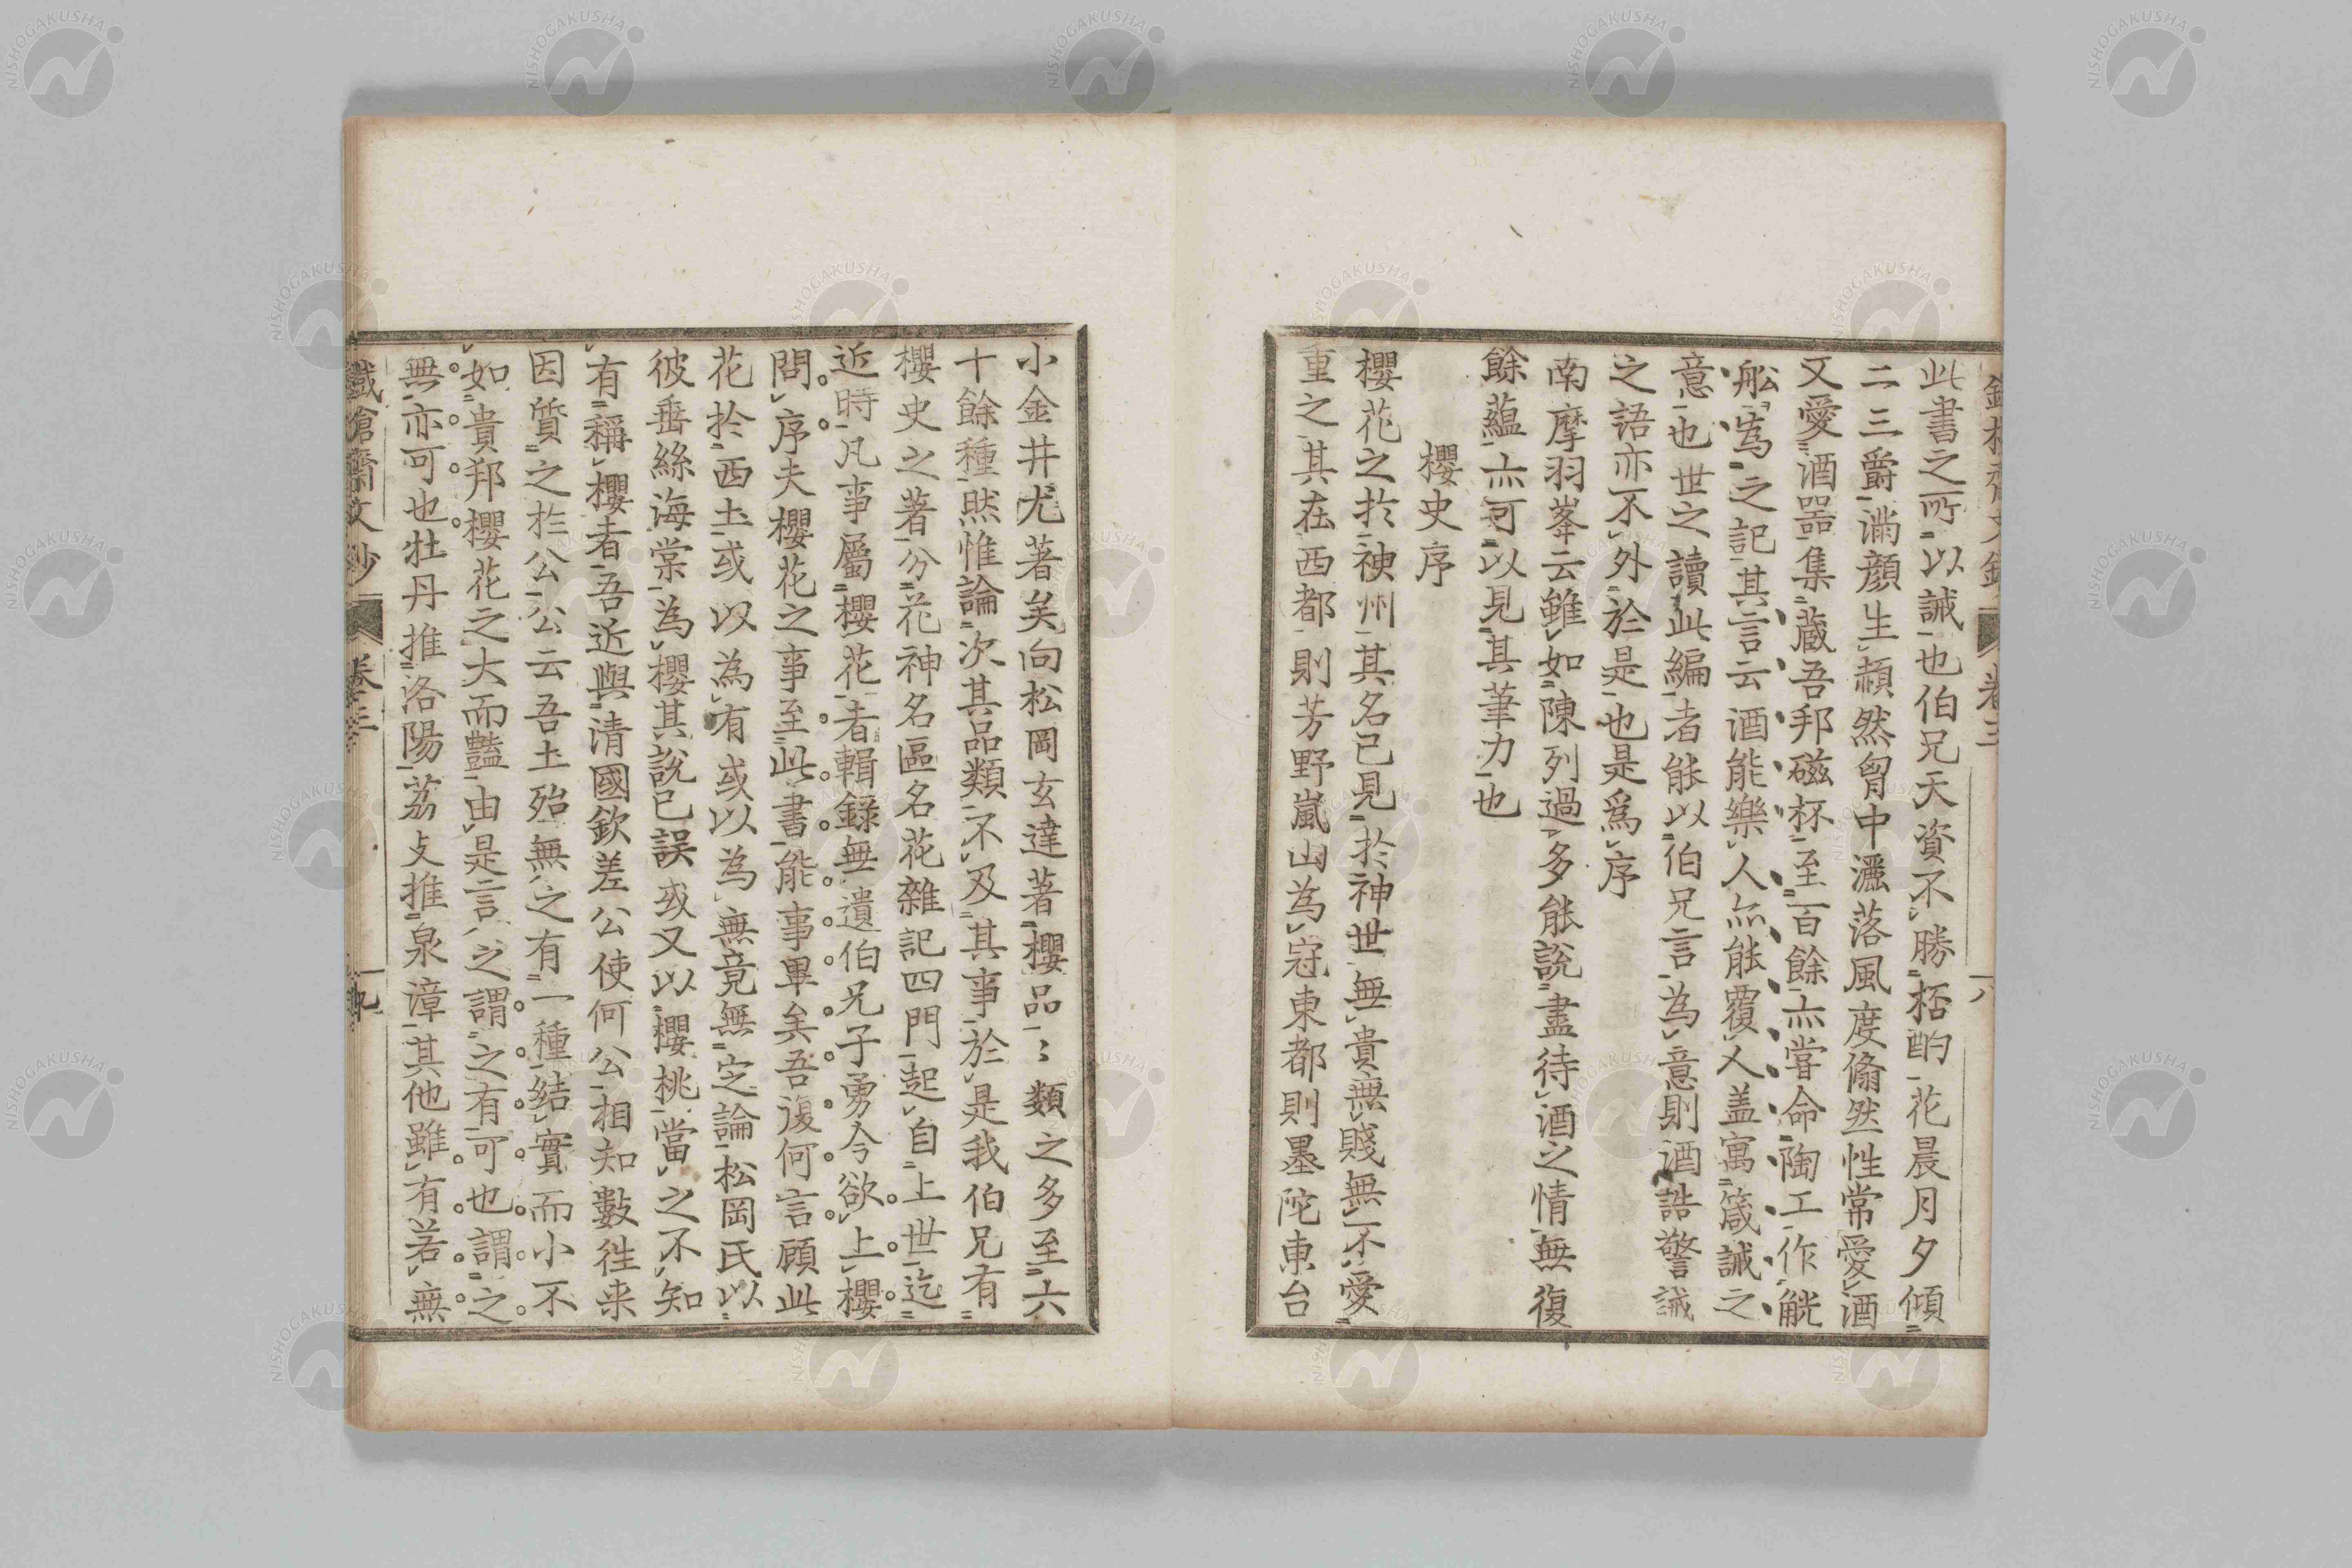 此書之所以誡也伯兄天資不勝桮酌花晨月夕傾
二三爵滿顏生赬然胷中灑落風度翛然性常愛酒
又愛酒器集蔵吾邦磁杯至百餘亦甞命陶工作觥
舩為之記其言云酒能樂人亦能覆人盖寓箴誡之
意也世之讀此編者能以伯兄言為意則酒誥警誡
之語亦不外於是也是爲序
南摩羽峯云雖如陳列過多能說盡待酒之情無復
餘蘊亦可以見其筆力也
櫻史序
櫻花之於神州其名已見於神世無貴無賤無不愛
重之其在西都則芳野嵐山為冠東都則墨陀東台
小金井尤著矣向松岡玄達著櫻品〻類之多至六
十餘種然惟論次其品類不及其事於是我伯兄有
櫻史之著分花神名區名花雜記四門起自上世迄
近時凡事屬櫻花者輯錄無遺伯兄子勇今欲上櫻
問序夫櫻花之事至此書能事畢矣吾復何言顧此
花於西土或以為有或以為無竟無定論松岡氏以
彼垂絲海棠為櫻其說已誤或又以櫻桃當之不知
有稱櫻者吾近與清國欽差公使何公相知數徃来
因質之於公公云吾土殆無之有一種結實而小不
如貴邦櫻花之大而豔由是言之謂之有可也謂之
無亦可也牡丹推洛陽荔支推泉漳其他雖有若無
鐵槍齋文鈔 卷三 九